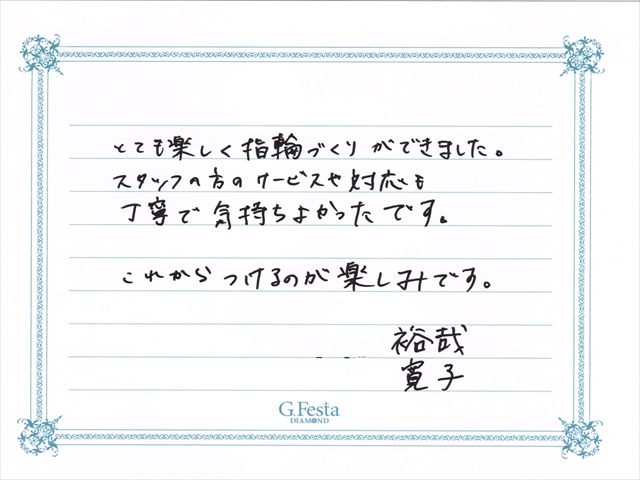 とても楽しく指輪づくりができました。
スタッフの方のサービスや対応も
丁寧で気持ちよかったです。
これからつけるのが楽しみです。
裕哉
寛子
G.Festa
DIAMOND